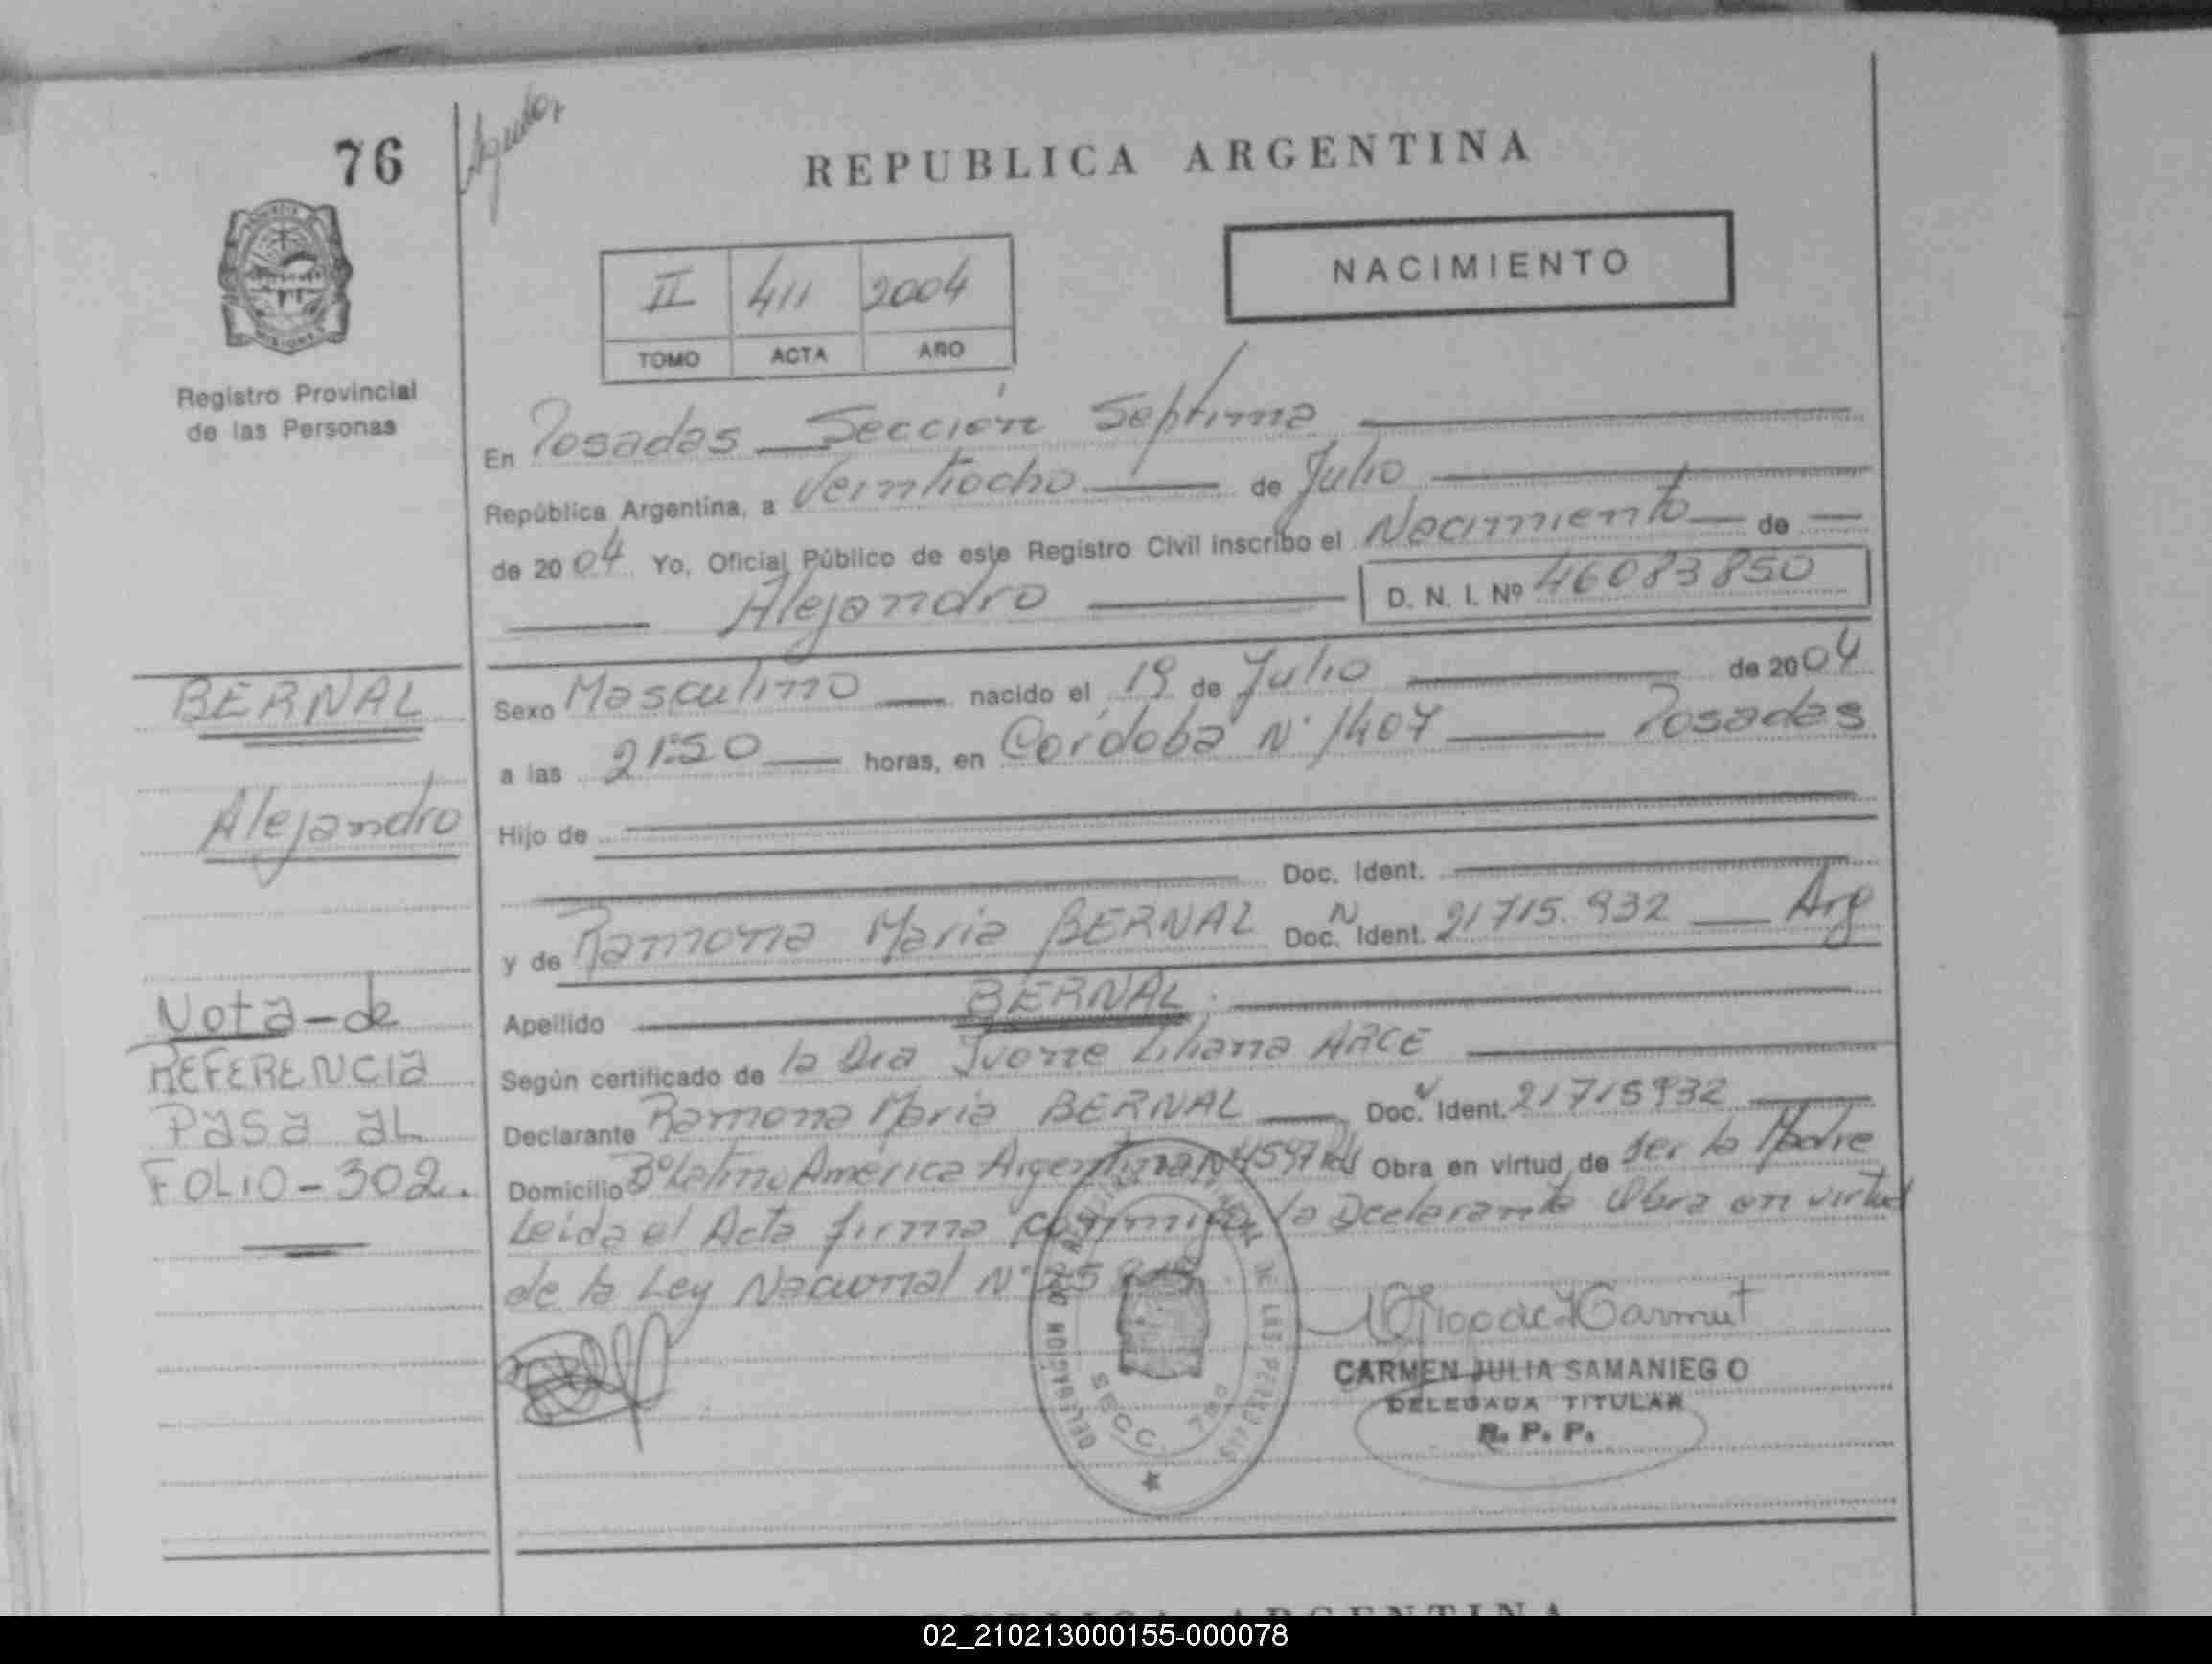 76
REPUBLICA ARGENTINA
NACIMIENTO
II 411 2004
TOMO ACTA AÑO
Registro Provincial
de las Personas
En Posadas Sección Septima
República Argentina, a Veintiocho de Julio
de 2004 Yo, Oficial Público de este Registro Civil inscribo el Nacimiento de
Alejandro D. N. I. Nº 46083850
BERNAL
Alejandro
Sexo Masculino nacido el 19 de Julio de 2004
a las 21:50 horas, en Córdoba Nº 1407 Posadas
Hijo de
Doc. Ident.
y de Ramona Maria BERNAL Doc. N Ident. 21715.932 Arg
Apellido BERNAL
Según certificado de la Dra Ivonne Liliana ARCE
Declarante Ramona Maria BERNAL Doc. Ident. 21715932
Domicilio Bº Latino América Argentina Nº 4597 Pds Obra en virtud de ser la Madre
Leida el Acta firma conmigo la Declarante Obra en virtud
de la Ley Nacional Nº
Nota-de
REFERENCIA
PASA AL
FOLIO-302.
DELEGACION DE LAS PERSONAS
SECC. 7ma
CARMEN JULIA SAMANIEGO
DELEGADA TITULAR
R. P. P.
ARGENTINA
02_210213000155-000078